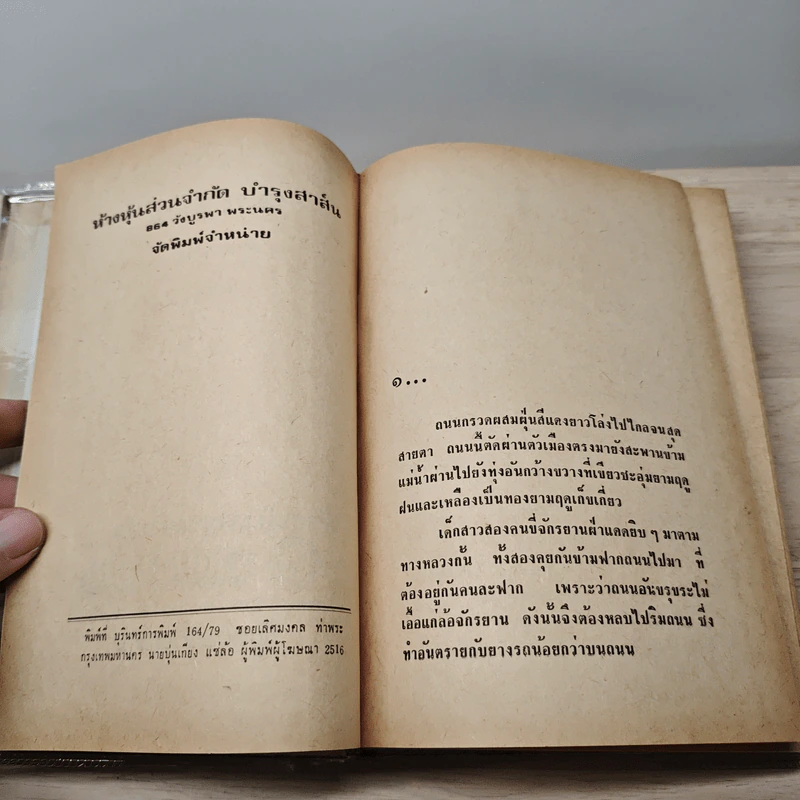 ห้างหุ้นส่วนจำกัด บำรุงสาส์น
๘๖๔ วังบูรพา พระนคร
จัดพิมพ์จำหน่าย
พิมพ์ที่ บุรินทร์การพิมพ์ 164/79 ซอยเลิศมงคล ท่าพระ
กรุงเทพมหานคร นายบุ่นเกียง แซ่ล้อ ผู้พิมพ์ผู้โฆษณา 2516
๑...
ถนนกรวดผสมฝุ่นสีแดงยาวโล่งไปไกลจนสุด
สายตา ถนนนี้ตัดผ่านตัวเมืองตรงมายังสะพานข้าม
แม่น้ำผ่านไปยังทุ่งอันกว้างขวางที่เขียวชะอุ่มยามฤดู
ฝนและเหลืองเป็นทองยามฤดูเก็บเกี่ยว
เด็กสาวสองคนขี่จักรยานฝ่าแดดยิบ ๆ มาตาม
ทางหลวงกั้น ทั้งสองคุยกันข้ามฟากถนนไปมา ที่
ต้องอยู่กันคนละฟาก เพราะว่าถนนอันขรุขระไม่
เอื้อแก่ล้อจักรยาน ดังนั้นจึงต้องหลบไปริมถนน ซึ่ง
ทำอันตรายกับยางรถน้อยกว่าบนถนน